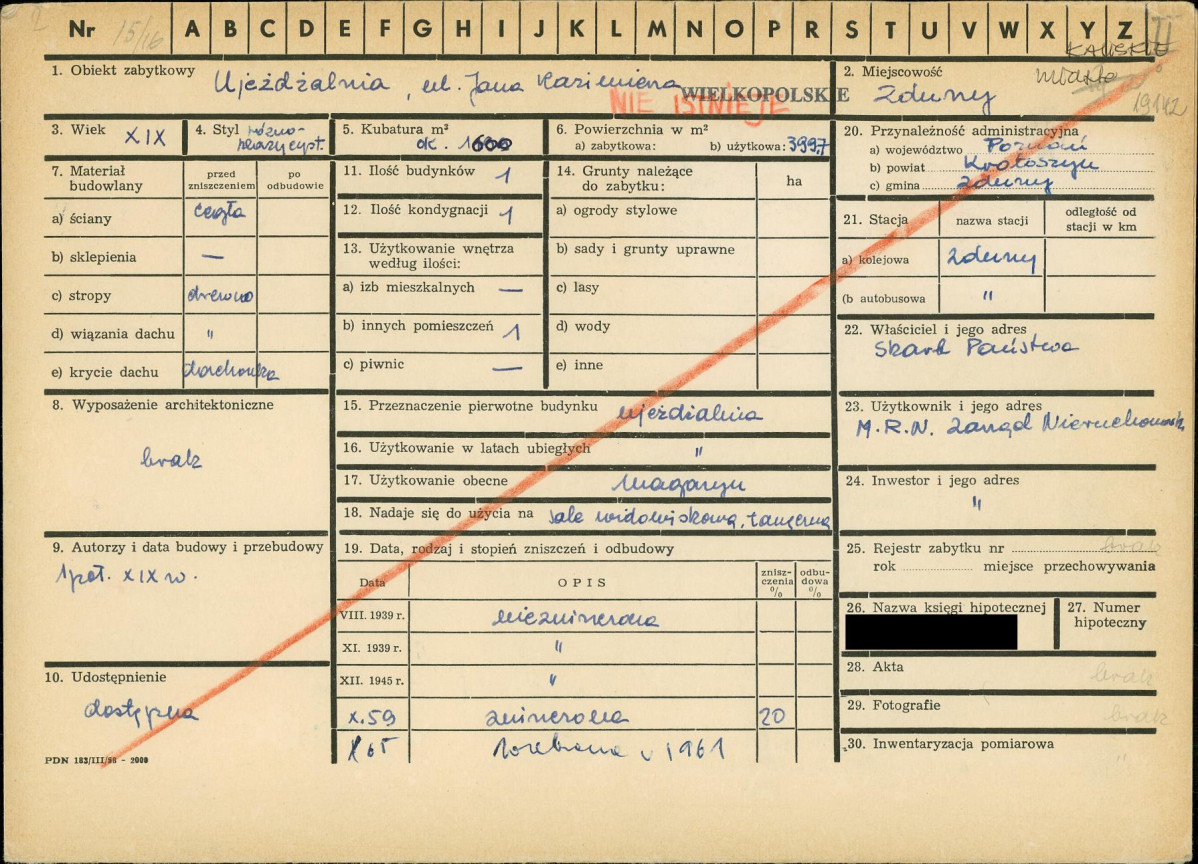 Nr 15/16 A B C D E F G H I J K L M N O P R S T U V W X Y Z II
KALISKIE
1. Obiekt zabytkowy Ujeżdżalnia, ul. Jana Kazimierza
NIE ISTNIEJE
WIELKOPOLSKIE
2. Miejscowość miasto
Zduny 19142
3. Wiek XIX
4. Styl różno-
klasycyst.
5. Kubatura m²
ok. 1600
6. Powierzchnia w m²
a) zabytkowa: b) użytkowa: 399,7
20. Przynależność administracyjna
a) województwo Poznań
b) powiat Krotoszyn
c) gmina Zduny
7. Materiał budowlany
przed zniszczeniem
po odbudowie
a) ściany cegła
b) sklepienia —
c) stropy drewno
d) wiązania dachu "
e) krycie dachu dachówka
11. Ilość budynków 1
12. Ilość kondygnacji 1
13. Użytkowanie wnętrza
według ilości:
a) izb mieszkalnych —
b) innych pomieszczeń 1
c) piwnic —
14. Grunty należące
do zabytku: ha
a) ogrody stylowe
b) sady i grunty uprawne
c) lasy
d) wody
e) inne
21. Stacja
nazwa stacji
odległość od
stacji w km
a) kolejowa Zduny
(b autobusowa "
22. Właściciel i jego adres
Skarb Państwa
8. Wyposażenie architektoniczne
brak
15. Przeznaczenie pierwotne budynku ujeżdżalnia
16. Użytkowanie w latach ubiegłych "
17. Użytkowanie obecne magazyn
18. Nadaje się do użycia na sale widowiskową, taneczną
23. Użytkownik i jego adres
M.R.N. Zarząd Nieruchomości
24. Inwestor i jego adres
"
9. Autorzy i data budowy i przebudowy
1 poł. XIX w.
19. Data, rodzaj i stopień zniszczeń i odbudowy
Data OPIS
znisz-
czenia
%
odbu-
dowa
%
VIII. 1939 r. niezniszczona
XI. 1939 r. "
XII. 1945 r. "
X.59 zniszczona 20
X 65 rozebrana w 1961
25. Rejestr zabytku nr brak
rok miejsce przechowywania
26. Nazwa księgi hipotecznej
27. Numer
hipoteczny
10. Udostępnienie
dostępna
28. Akta brak
29. Fotografie brak
30. Inwentaryzacja pomiarowa "
PDN 183/III/58 - 2000